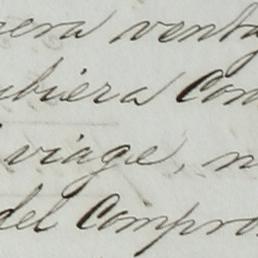 nera venta
ubiera Com
viage, n
del Compro